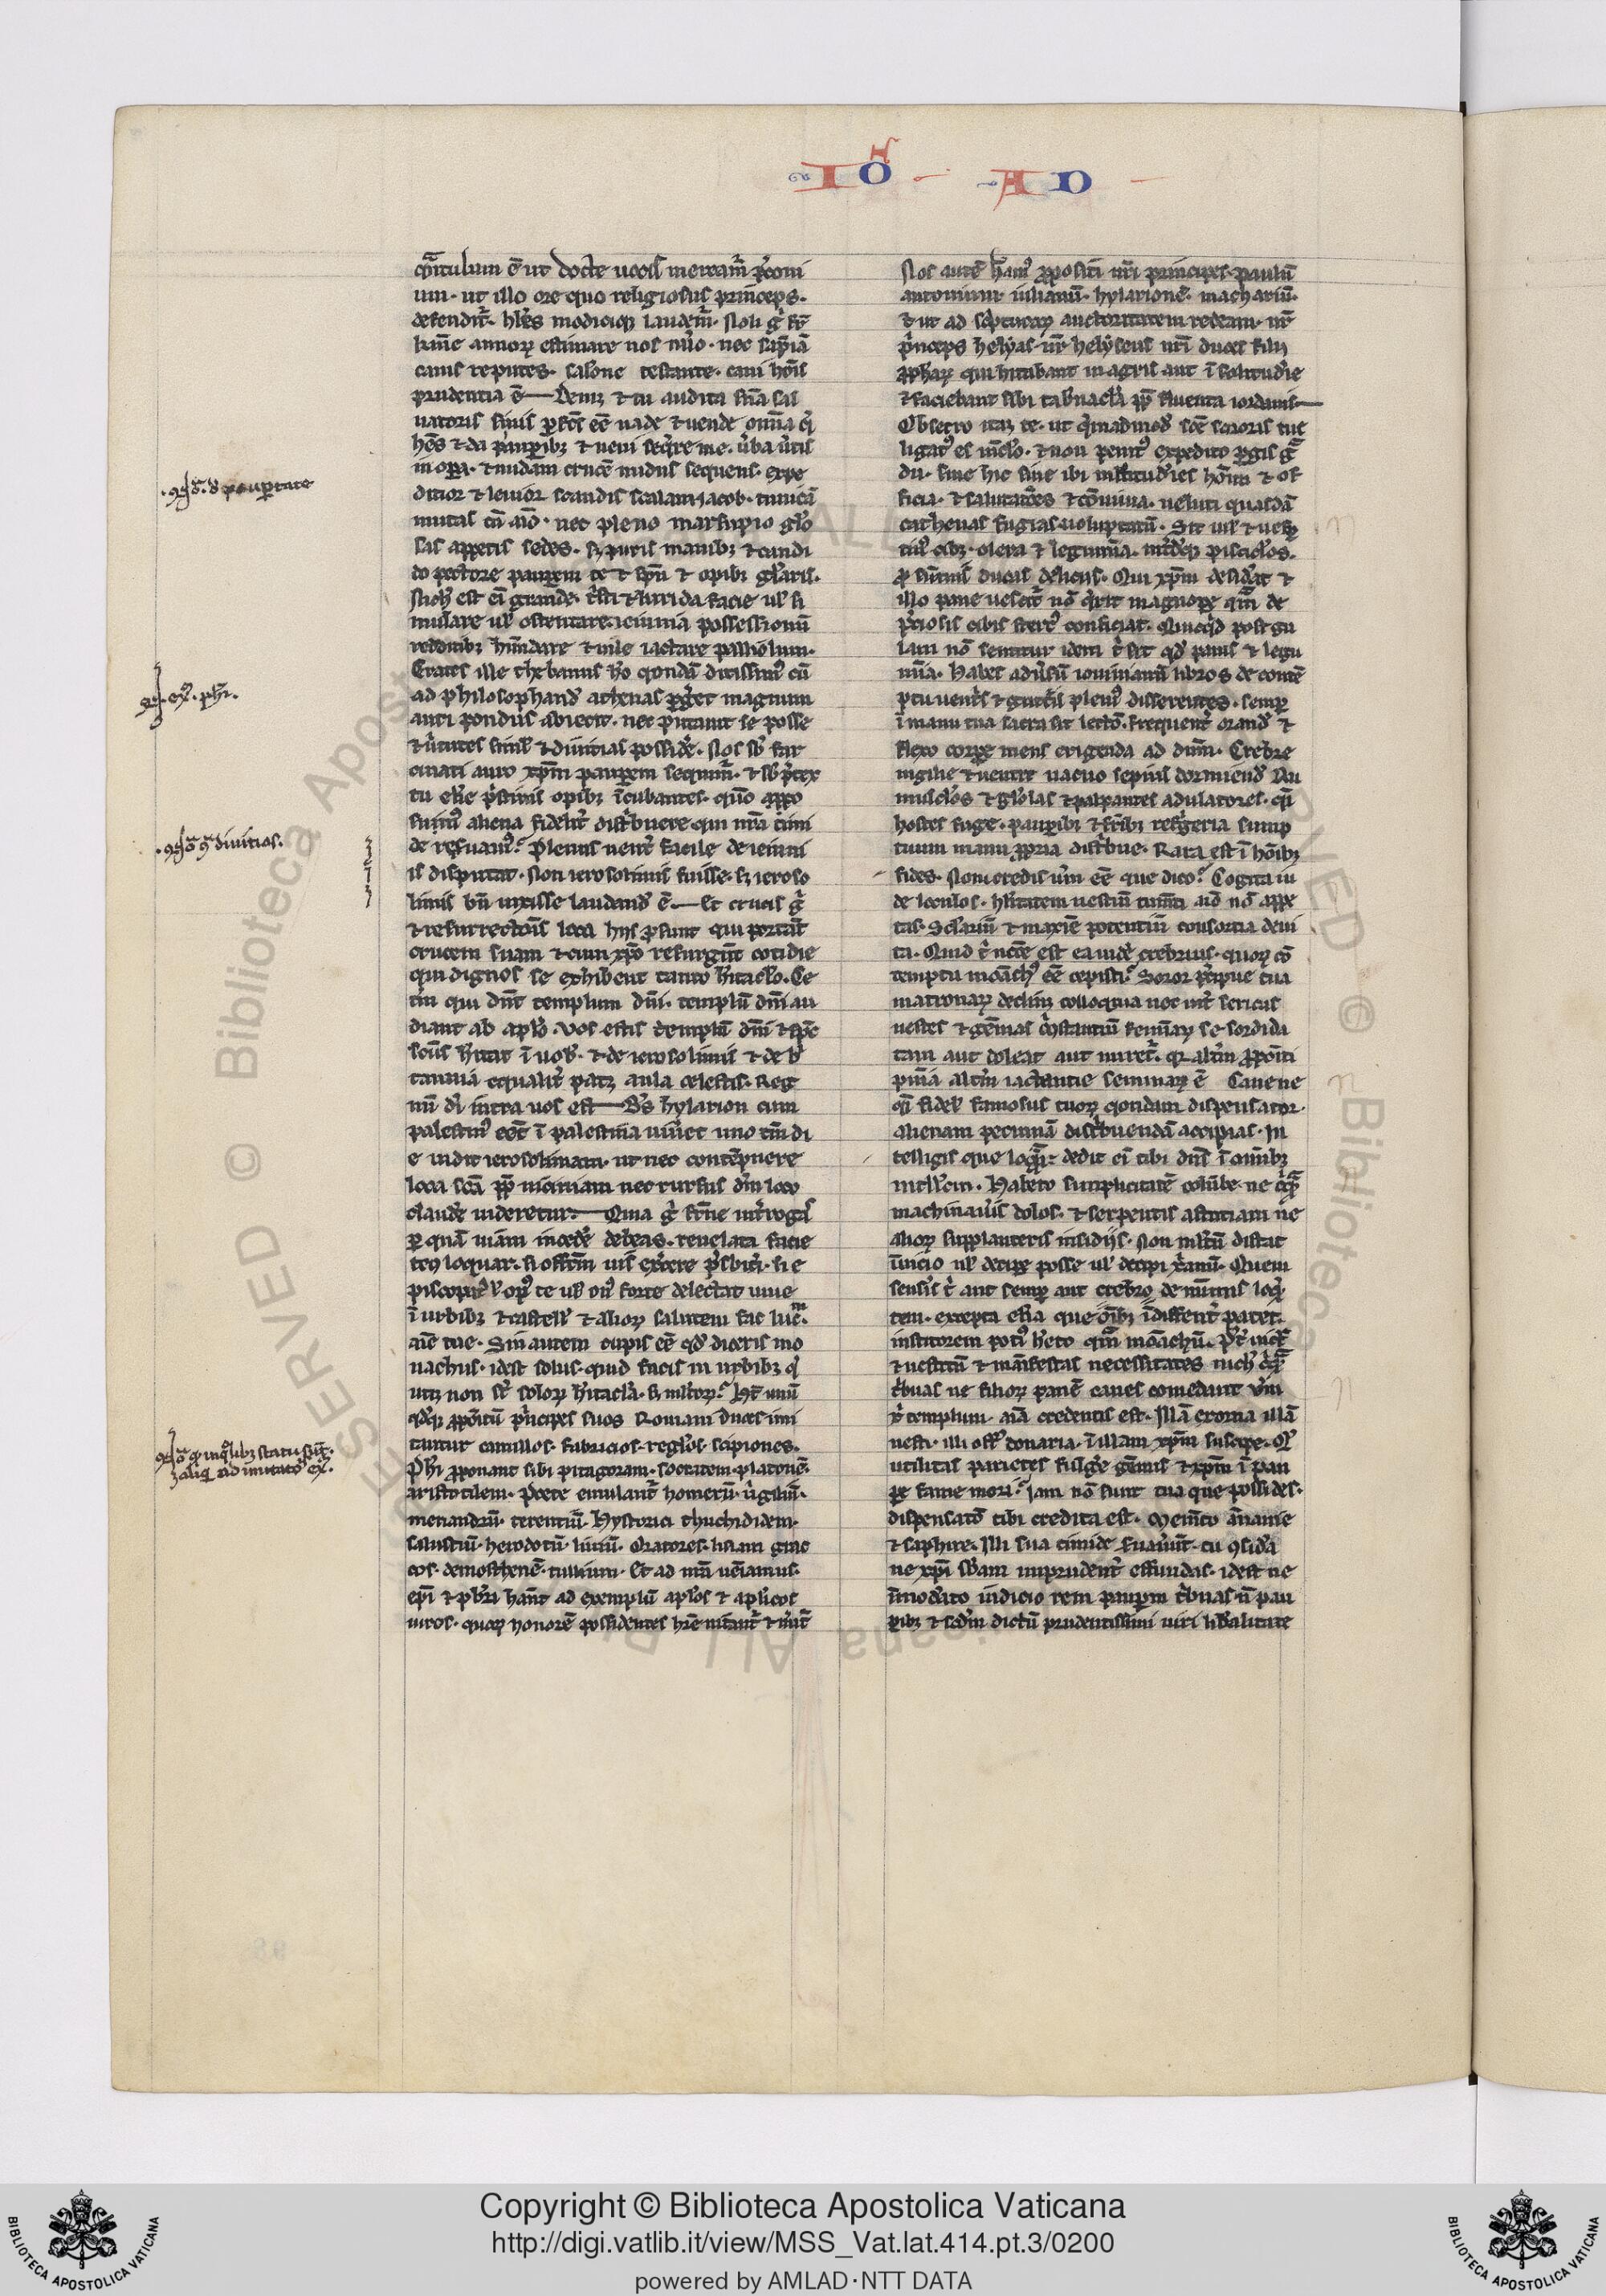 Ioħ — AD —
q̄ntulum ē ut docte uocis merear̄ p̄coni
um · ut illo ore quo religiosus princeps ·
defendit̄ · hr̄es modiciq; laudem̄ · Noli g̊ fr̄
kr̄ıme annoꝝ estimare nos nūo · nec sap̄iā
canis reputes · salone testante · cani hoīs
prudentia ē — Deniq; ⁊ tu audita sn̄ia sal
uatoris si uis ꝑfcs̄ eē uade ⁊ uende om̄ia q̄
hēs ⁊ da paupib; ⁊ ueni seq̄re me · ūba ūtis
in opa · ⁊ nudam crucē nudus sequens · expe
ditior ⁊ leuior scandis scalam iacob · tunicā
mutas cū aīo · nec pleno marsupio glo
sas appetis sedes · sꝫ puris manib; ⁊ candi
do pectore pauꝑem te ⁊ sp̄u ⁊ opib; gl̄aris ·
Nich̓ est ei grande · t̓sti ⁊ lurida facie ul̓ si
mulare ul̓ ostentare ieiunia possessionū
redditib; hūdare ⁊ uile iactare palliolum ·
Crates ille thebanus hō qondā ditissim̓ cū
ad philosophand̓ athenas ꝑg̓et magnum
auri pondus abiecit · nec putauit se posse
⁊ ūtutes simł ⁊ diuitias posside̓ · Nos sb̓ far
cinati auro xp̄m pauꝑem sequim̄ · ⁊ sb̓ p̄tex
tu el̓ie p̄stinis opib; īcubantes · quō appo
sum̓ aliena fidelit̓ dist̓buere qui nr̄a timi
de reßuam̓ ? Plenus uent̓ facile de ieiuni
is disputat · Non ierosolimis fuisse · sꝫ ieroso
limis bn̄ uixisse laudand̓ ē · — Et crucis g̊
⁊ resurrectōis loca hijs ꝓsunt qui portāt
crucem suam ⁊ cum xp̄o resurgūt cotidie
qui dignos se exhibent tanto hītac̓lo · Ce
t̓m qui dn̄t templum dn̄i · templū dn̄i au
diant ab ap̄lo · Vos estis templū dn̄i ⁊ sp̄c
scūs hītat ī uob̓ · ⁊ de ierosolimis ⁊ de b̓
tannia equalit̓ patꝫ aula celestis · Reg
nū di̓ intra uos est — B̓s hylarion cum
palestin̓ eēt ī palestina uiu̓et uno tm̄ di
e uidit ierosolimam · ut nec contēpnere
loca scā ꝓp̄ uiciniam nec rursus dn̄m loco
claude̓ uideretur · — Quia g̊ fr̄ne int̓roga̓s
ꝑ quā uiam incede̓ debeas · reuelata facie
tecū loquar · si offm̄ uis ex̓cere p̄sbit̓i · si e
piscopat̓ ł op̓ te uł on̓ forte delectat uiue
ī urbib; ⁊ castell̓ ⁊ alioꝝ salutem fac luc̓m
aīe tue · Sin autem cupis eē qd̓ diceris mo
nachus · idest solus · quid facis in urbib; q̄
utiq; non st̄ soloꝝ hītac̓la · sꝫ mltoꝝ ? Ht̄ unū
qd̓q; ꝓpōitū p̄ncipes suos Romani duces imi
tantur camillos · fabricios · regl̓os · scipiones ·
Ph̄i ꝓponant sibi pitagoram · socratem · platonē ·
aristotilem · Poete emulant̓ homerū · ūgiliū ·
menandrū · terentiū · Hystorici thuchididem ·
salustiū · herodotū · liuiū · Oratores · lisiam grac
cos · demosthenē · tulium · Et ad nr̄a ueīamus ·
ep̄i ⁊ pb̄ri hānt ad exemplū ap̄los ⁊ ap̄licos
uiros · quoꝝ honorē possidentes hr̄e nitant̓ ⁊ m̓it̓
Nos autē ham̓ ꝓpositi nr̄i principes · paulū
antonium iulianū · hylarionē · machariū ·
⁊ ut ad sc̓pturaꝝ auctoritatem redeam · nr̄
p̄nceps helyas · nr̄ helyseus nr̄i duces filij
ꝓphaꝝ qui hītabant in agris aut ī solitud̓ie
⁊ faciebant sibi tab̓nac̓la ꝓp̄ fluenta iordanis —
Obsecro itaq; te · ut q̄madmod̓ scē sororis tue
ligat̓ es ui̓clo · ⁊ non penit̓ expedito ꝑgis g̓
du · siue hic siue ibi multitud̓ies hoīm ⁊ of
ficia · ⁊ salutatōes ⁊ cōuiuia · ueluti quasdā
cathenas fugias uoluptatū · Sit uil̓ ⁊ ueſp
tin̓ cib; · olera ⁊ legumia · int̓dū piscic̓los ·
ꝓ sūmis ducas delicijs · Qui xp̄m desid̓at ⁊
illo pane uescit̓ nō q̄rit magnoꝑe qm̄ de
p̄ciosis cibis sterc̓ conficiat · Quicq̄d post gu
lam nō sentitur idem t̓ sit qd̓ panis ⁊ legu
mīa · Habes adu̓sū iouinianū libros de cōtē
ptu uent̓s ⁊ gutt̓is plen̓ disserentes · semꝑ
ī manu tua sacra sit lectō · frequent̓ orand̓ ⁊
flexo corpe mens erigenda ad dn̄m · Crebre
uigilie ⁊ uenter uacuo sepius dormiend̓ Ru
musc̓los ⁊ gl̓olas ⁊ palpantes adulatores · q̄i
hostes fuge · pauꝑib; ⁊ fr̄ib; refg̓eria sump
tuum manu ꝓpria dist̓bue · Rara est ī hoīb;
fides · Non credis ūm eē que dico ? Cogita iu
de loculos · hūilitatem uestiū tumēti aīo nō appe
tas · Sclariū ⁊ maxīe potentiū consortia deui
ta · Quid t̓ nc̄ce est ea uide̓ crebrius · quoꝝ cō
temptu mōach̓ eē cepisti ? Soror p̄cipue tua
matronaꝝ declinꝫ colloquia nec int̓ sericas
uestes ⁊ gēmas q̓stantiū femīaꝝ se sordida
tam aut doleat aut miret̓ · q̄ alt̓m ꝓpōiti
pn̄ia alt̓m iactantie seminaꝝ ē Caue ne
q̄i fidel̓ famosus tuoꝝ qondam dispensator ·
Alienam pecuniā dist̓buendā accipias · In
telligis que loq̄r · dedit ei̓ tibi dn̄s ī om̄ib;
intllc̄m · Habeto simplicitatē colūbe · ne c̓q̄
machineu̓is dolos · ⁊ serpentis astutiam ne
alioꝝ supplanteris insidijs · Non mltū distat
ī uicio ul̓ decipe posse ul̓ decipi x̄anū · Quem
sens̓is t̓ aut semꝑ aut crebro de nūmis loq̄
tem · excepta elīa que oīb; īdiffent̓ patet ·
institorem poti̓ h̓eto qm̄ mōachū · Pt̄ uictū
⁊ uestitū ⁊ māifestas necessitates nich̓ c̓q̄
t̓buas ne filioꝝ panē canes comedant Vm̄
xp̄i templum aīa credentis est · Illā exorna illā
uesti · illi off̓ donaria · ī illam xp̄m suscipe · Q̄
utilitas parietes fulg̓e gēmis ⁊ xp̄m ī pau
pe fame mori ? Iam nō sunt tua que possides ·
dispensatō tibi credita est · Memēto ananie
⁊ saphire · Illi sua timide ſuau̓unt · tu ꝯsid̓a
ne xp̄i sb̓am imprudent̓ effundas · idest ne
īmod̓ato iudicio rem pauꝑum t̓buas n̄ pau
ꝑib; ⁊ sc̓d̓m dictū prudentissimi uiri lib̓alitate
· ꝯsı̓dō · d̓ pauꝑtate
ex̄ · ph̄i ·
· ꝯsı̓dō ꝯ̄ diuitias ·
Copyright © Biblioteca Apostolica Vaticana
http://digi.vatlib.it/view/MSS_Vat.lat.414.pt.3/0200
powered by AMLAD·NTT DATA
BIBLIOTECA APOSTOLICA VATICANA
BIBLIOTECA APOSTOLICA VATICANA